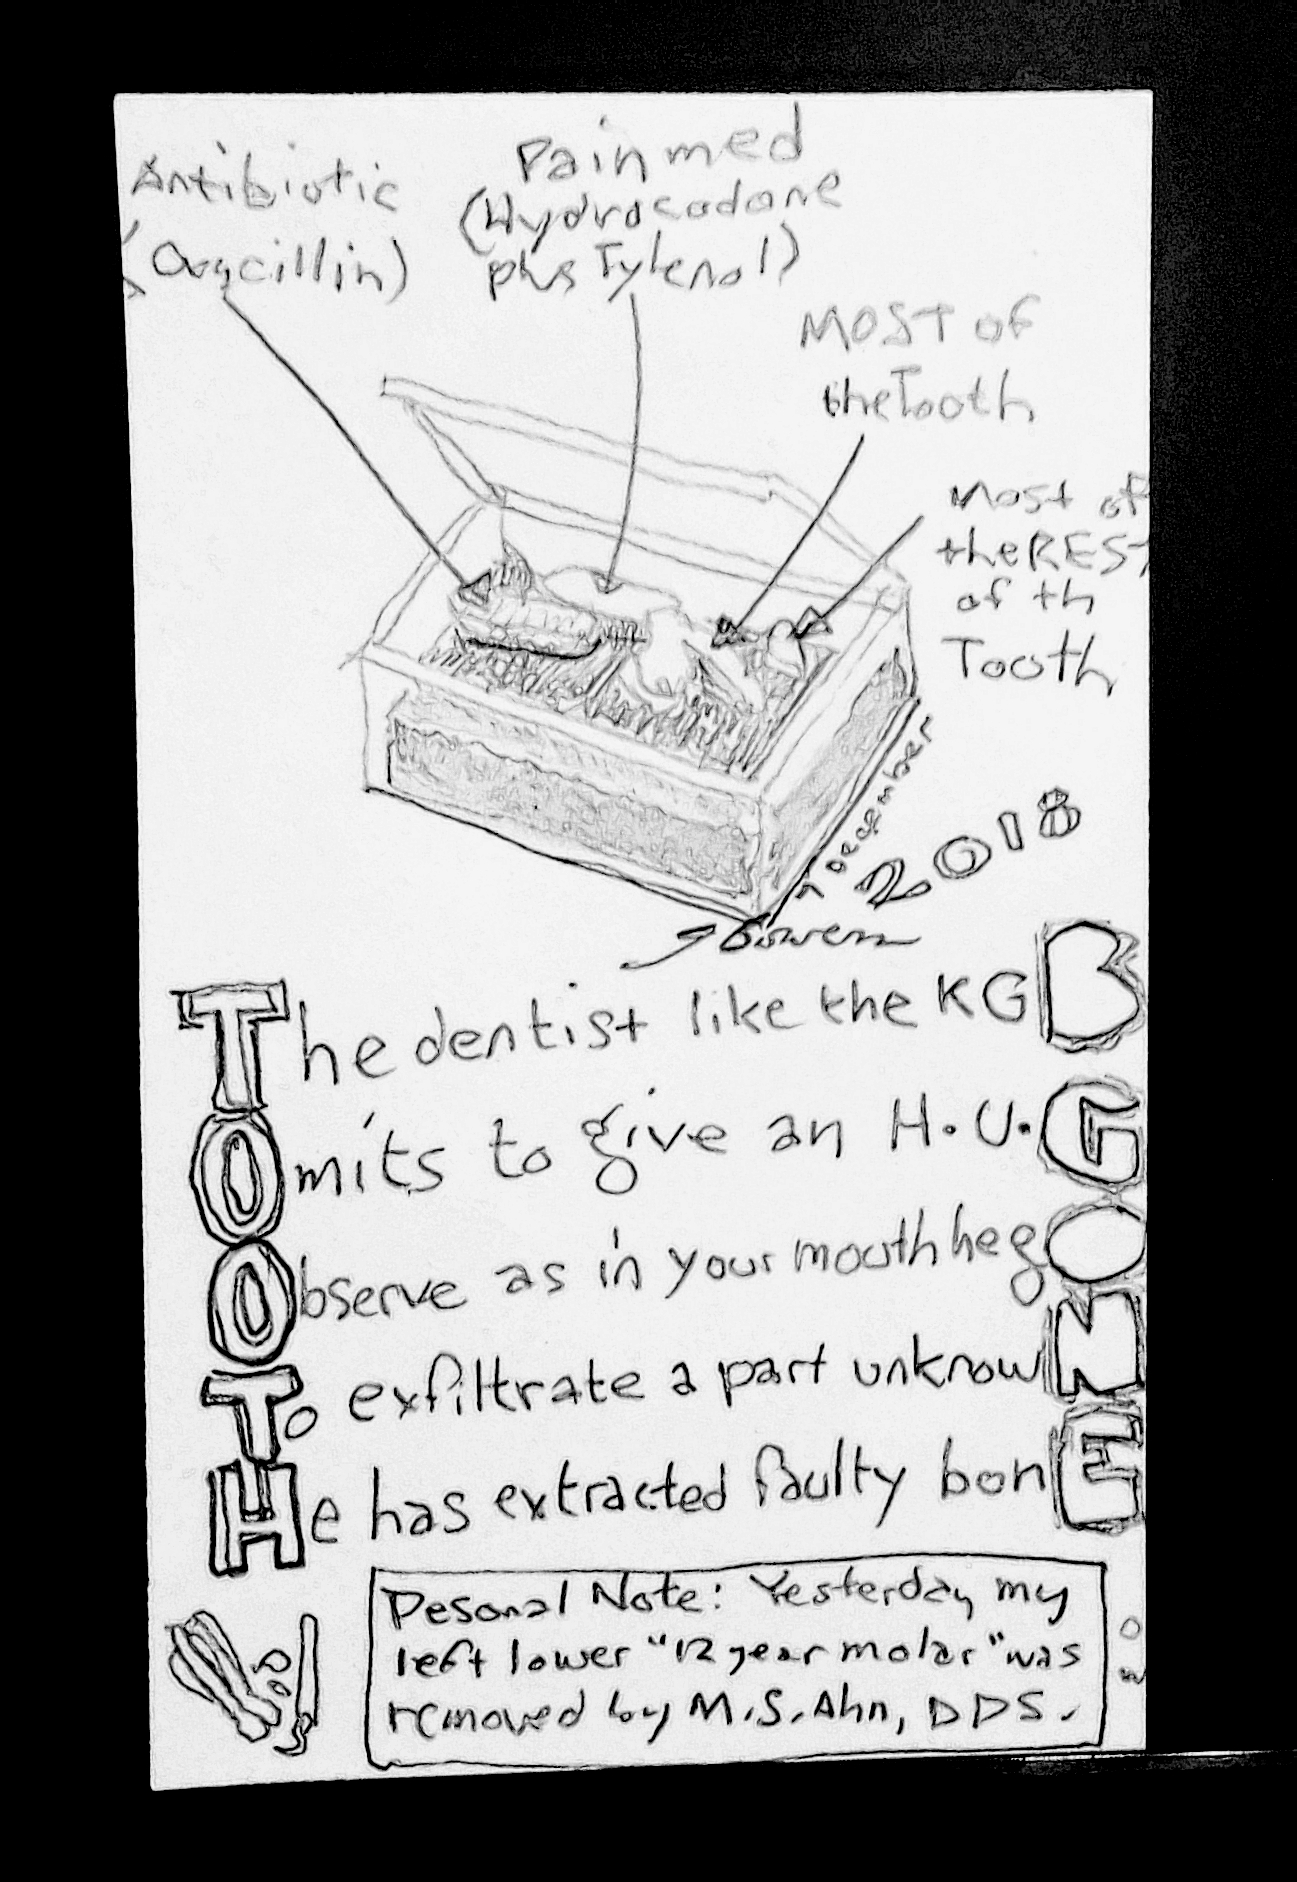 Antibiotic
(Oxycillin)
Pain med
(Hydrocodone
plus Tylenol)
MOST of
the Tooth
Most of
the REST
of th
Tooth
7 December
2018
J Bowers
The dentist like the KGB
Omits to give an H.U.G
Observe as in your mouth he gO
To exfiltrate a part unknowN
He has extracted faulty bonE
Pesonal Note: Yesterday my
left lower "12 year molar" was
removed by M.S. Ahn, DDS.